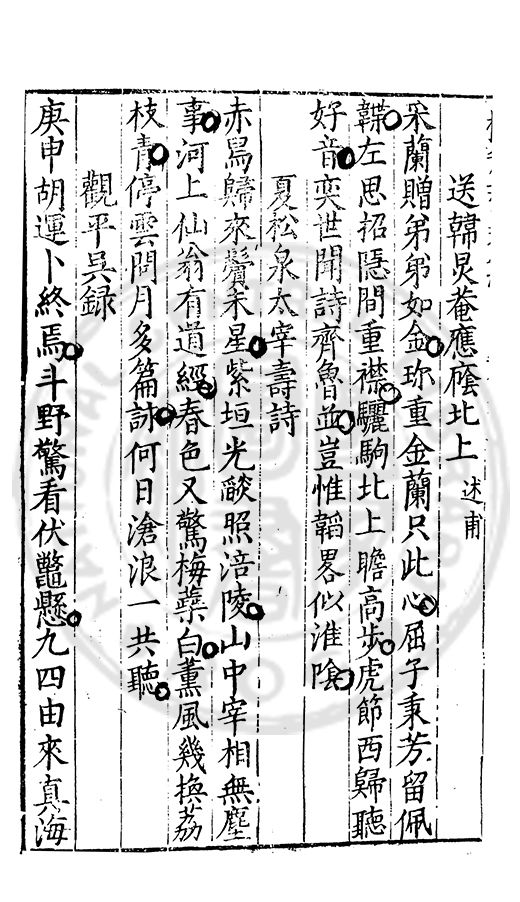 送韓炅菴應廕北上 述甫
采蘭贈弟躬如金珎重金蘭只此心屈子秉芳留佩
韘左思招隱間重襟驪駒北上瞻高步虎節西歸聽
好音奕世聞詩齊魯並豈惟韜畧似淮陰
夏松泉太宰壽詩
赤舄歸來鬢未星紫垣光燄照涪陵山中宰相無塵
事河上仙翁有道經春色又驚梅蘂白薰風幾換荔
枝青停雲問月多篇詠何日滄浪一共聽
觀平吳録
庚申胡運卜終焉斗野驚看伏鼈懸九四由來真海